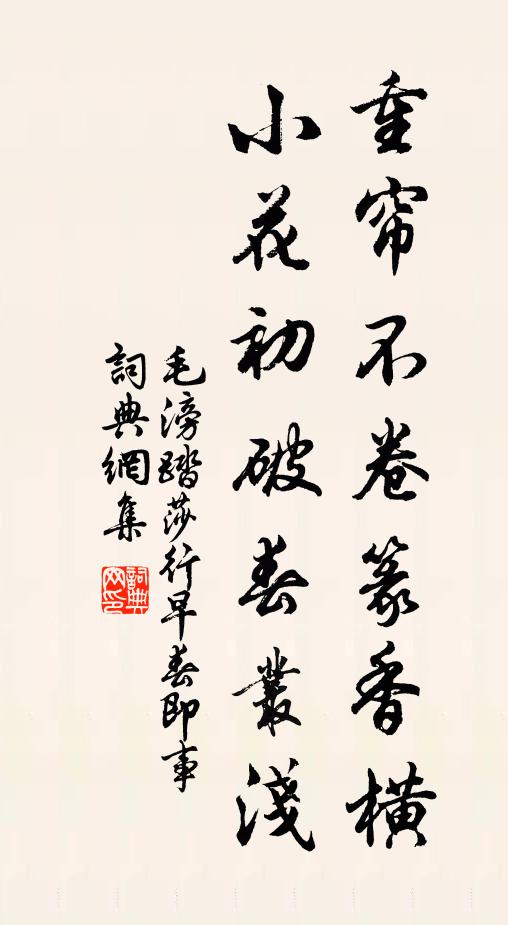 重帘不卷篆香橫
小花初破春叢淺
毛滂踏莎行早春即事
詞典網集
詞典
网印